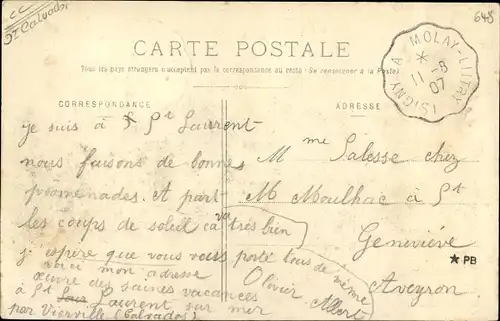 CC
St Calvados
648
CARTE POSTALE
Tous les pays étrangers n'acceptent pas la correspondance au recto (Se renseigner à la Poste)
MOLAY-LITTRY
ISIGNY A
*
11-8
07
CORRESPONDANCE
ADRESSE
je suis à St Laurent
nous faisons de bonnes
promenades. A part
les coups de soleil ça va très bien
j'espère que vous vous porté tous de même
voici mon adresse
œuvre des saines vacances
à St Laurent sur mer
par Vierville (Calvados)
Olivier Albert
Mme Salesse chez
M Moulhac à St
Geneviève
Aveyron
★ PB